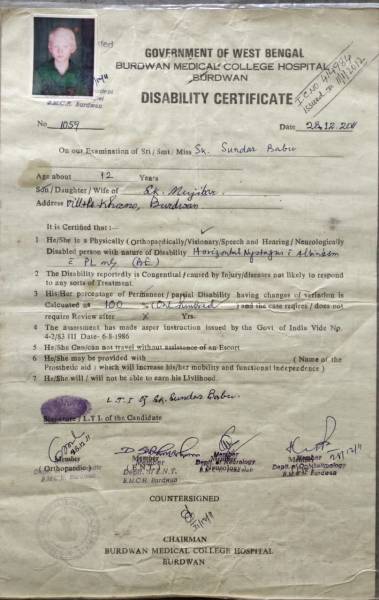 GOVERNMENT OF WEST BENGAL
BURDWAN MEDICAL COLLEGE HOSPITAL
BURDWAN
DISABILITY CERTIFICATE
I.C. NO. 414984
issued on
B.M.C.H. Burdwan
No 1059
Date 28.12.2011
On our Examination of Sri / Smt / Miss Sk. Sundar Babu
Age about 12 Years
Son / Daughter / Wife of Sk. Mujibar
Address Burdwan
It is Certified that :—
1 He/She is a Physically ( Orthopaedically / Visionary / Speech and Hearing / Neurologically
Disabled person with nature of Disability Horizontal Nystagmus albinism
PL only (BE)
2 The Disability reportedly is Congential / caused by Injury / diseases not likely to respond
to any sorts of Treatment.
3 His/Her porcentage of Permanent / partial Disability having changes of variation is
Calcuated as 100 (One hundred) and the case reqires / does not
require Review after X Yrs.
4 The assessment has made asper instruction issued by the Govt of India Vide Np.
4-2/83 III Date- 6-8-1986
5 He/She Can/can not travel without assistance of an Escort
6 He/She may be provided with ( Name of the
Prosthetic aid ) which will increase his/her mobility and functional independence )
7 He/She will / will not be able to earn his Livlihood.
L.T.I of Sk. Sundar Babu.
Signature / L.T.I. of the Candidate
Member Member Member Member
( Orthopaedic ) Deptt. of E.N.T. Deptt. of Neurology Deptt. of Ophthalmology
B.M.C.H. Burdwan B.M.C.H. Burdwan B.M.C.H. Burdwan
COUNTERSIGNED
CHAIRMAN
BURDWAN MEDICAL COLLEGE HOSPITAL
BURDWAN